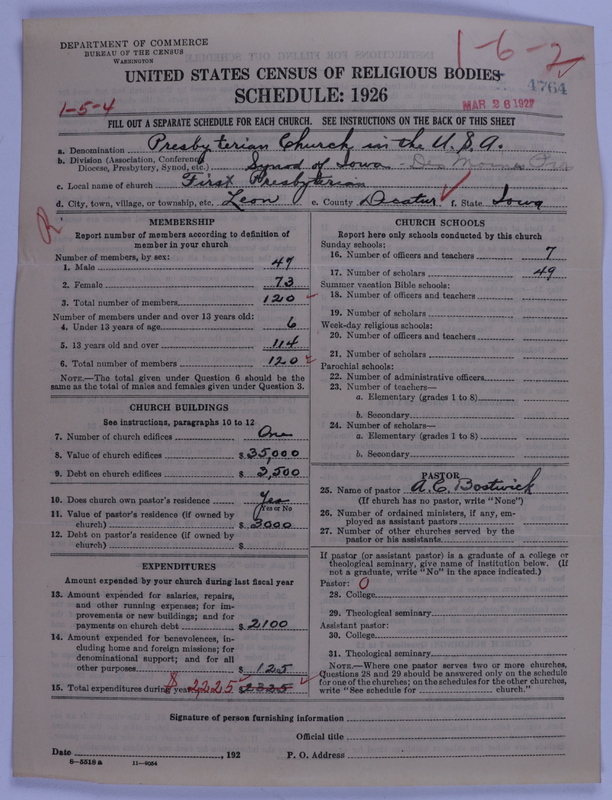 DEPARTMENT OF COMMERCE
BUREAU OF THE CENSUS
WASHINGTON
1-6-2
1-5-4
UNITED STATES CENSUS OF RELIGIOUS BODIES
SCHEDULE: 1926
4764
MAR 26 1927
FILL OUT A SEPARATE SCHEDULE FOR EACH CHURCH. SEE INSTRUCTIONS ON THE BACK OF THIS SHEET
a. Denomination Presbyterian Church in the U.S.A.
b. Division (Association, Conference, Diocese, Presbytery, Synod, etc.) Synod of Iowa - Des Moines
c. Local name of church First Presbyterian
d. City, town, village, or township, etc. Leon e. County Decatur f. State Iowa
R
MEMBERSHIP
Report number of members according to definition of
member in your church
Number of members, by sex:
1. Male 47
2. Female 73
3. Total number of members 120
Number of members under and over 13 years old:
4. Under 13 years of age 6
5. 13 years old and over 114
6. Total number of members 120
NOTE.—The total given under Question 6 should be the
same as the total of males and females given under Question 3.
CHURCH BUILDINGS
See instructions, paragraphs 10 to 12
7. Number of church edifices One
8. Value of church edifices $35,000
9. Debt on church edifices $3,500
10. Does church own pastor's residence Yes
(Yes or No)
11. Value of pastor's residence (if owned by
church) $3000
12. Debt on pastor's residence (if owned by
church) $
EXPENDITURES
Amount expended by your church during last fiscal year
13. Amount expended for salaries, repairs,
and other running expenses; for im-
provements or new buildings; and for
payments on church debt $2100
14. Amount expended for benevolences, in-
cluding home and foreign missions; for
denominational support; and for all
other purposes $125
15. Total expenditures during year $2225 $2325
CHURCH SCHOOLS
Report here only schools conducted by this church
Sunday schools:
16. Number of officers and teachers 7
17. Number of scholars 49
Summer vacation Bible schools:
18. Number of officers and teachers
19. Number of scholars
Week-day religious schools:
20. Number of officers and teachers
21. Number of scholars
Parochial schools:
22. Number of administrative officers
23. Number of teachers—
a. Elementary (grades 1 to 8)
b. Secondary
24. Number of scholars—
a. Elementary (grades 1 to 8)
b. Secondary
PASTOR
25. Name of pastor A. C. Bostwick
(If church has no pastor, write "None")
26. Number of ordained ministers, if any, em-
ployed as assistant pastors
27. Number of other churches served by the
pastor or his assistants
If pastor (or assistant pastor) is a graduate of a college or
theological seminary, give name of institution below. (If
not a graduate, write "No" in the space indicated.)
Pastor: 0
28. College
29. Theological seminary
Assistant pastor:
30. College
31. Theological seminary
NOTE.—Where one pastor serves two or more churches,
Questions 28 and 29 should be answered only on the schedule
for one of the churches; on the schedules for the other churches,
write "See schedule for church."
Signature of person furnishing information
Official title
Date , 192 P. O. Address
8—5518 a 11—9064